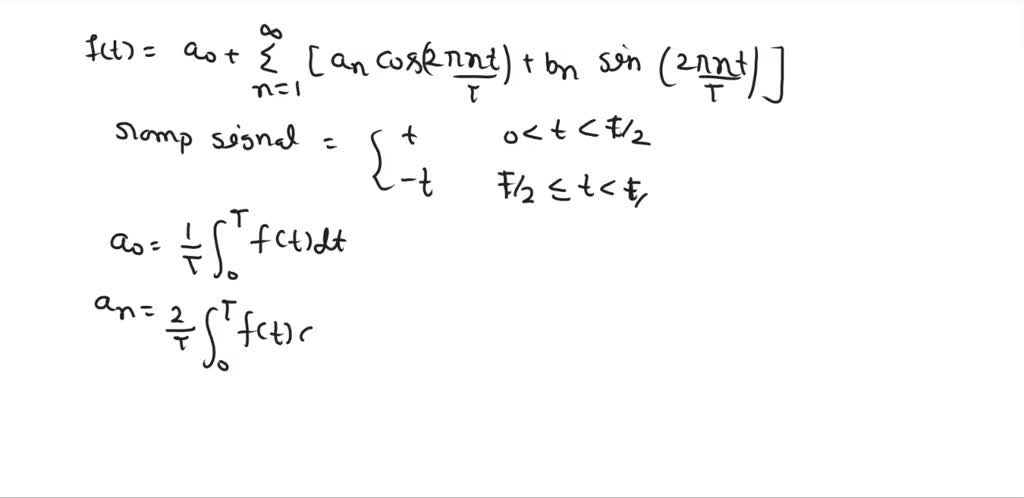 f(t) = a₀ + ∞Σn=1 [an cos(2πnt/T) + bn sin (2πnt/T)]
ramp signal = { t 0 < t < T/2
-t T/2 ≤ t < t,
a₀ = 1/T ∫₀ᵀ f(t)dt
an = 2/T ∫₀ᵀ f(t) c